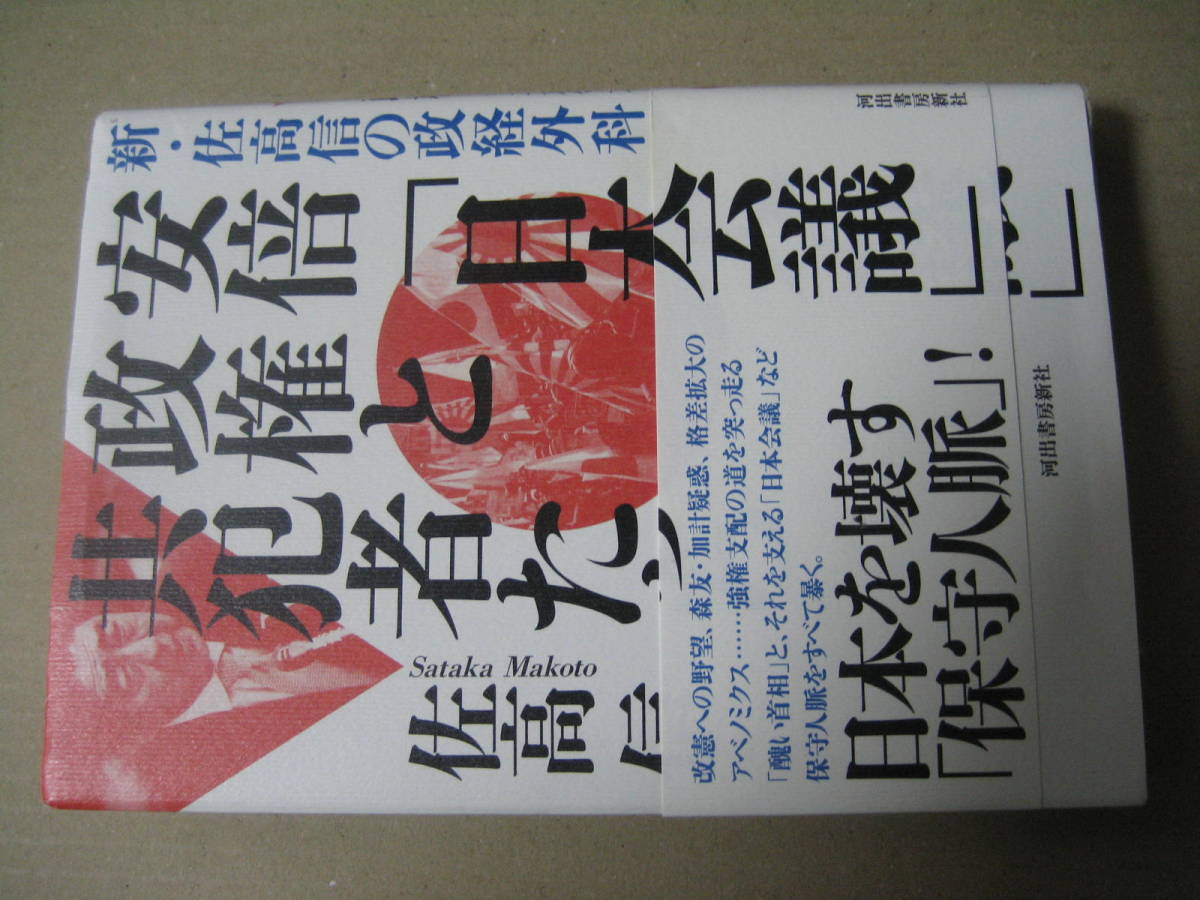 新・佐高信の政経外科
安倍「日本会議」
政権と
共犯者た
Sataka Makoto
佐高
改憲への野望、森友・加計疑惑、格差拡大の
アベノミクス……強権支配の道を突っ走る
「醜い首相」と、それを支える「日本会議」など
保守人脈をすべて暴く。
日本を壊す
「保守人脈」!
河出書房新社
河出書房新社